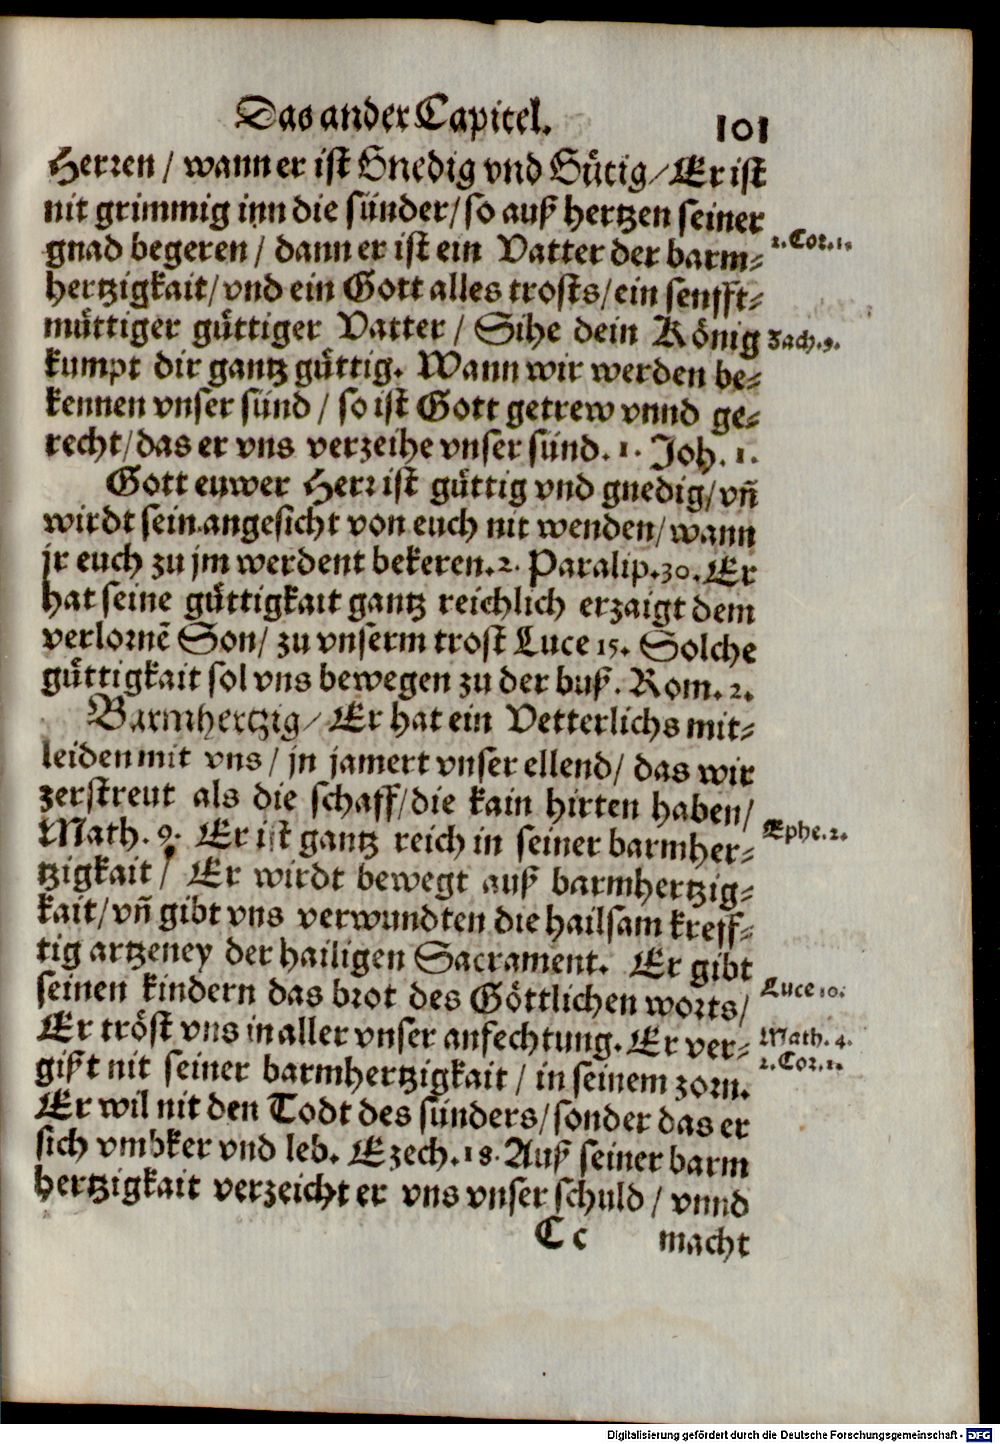 Das ander Capitel. 101
Herren / wann er ist Gnedig vnd Gütig / Er ist
nit grimmig inn die sünder / so auß hertzen seiner
gnad begeren / dann er ist ein Vatter der barm⸗ 2. Cor. 1.
hertzigkait / vnd ein Gott alles trosts / ein senfft⸗
müttiger güttiger Vatter / Sihe dein König Zach. 9.
kumpt dir gantz güttig. Wann wir werden be⸗
kennen vnser sünd / so ist Gott getrew vnnd ge⸗
recht / das er vns verzeihe vnser sünd. 1. Joh. 1.
Gott euwer Herr ist güttig vnd gnedig / vñ
wirdt sein angesicht von euch nit wenden / wann
jr euch zu jm werdent bekeren. 2. Paralip. 30. Er
hat seine güttigkait gantz reichlich erzaigt dem
verlornẽ Son / zu vnserm trost Luce 15. Solche
güttigkait sol vns bewegen zu der buß. Rom. 2.
Barmhertzig / Er hat ein Vetterlichs mit⸗
leiden mit vns / jn jamert vnser ellend / das wir
zerstreut als die schaff / die kain hirten haben /
Math. 9. Er ist gantz reich in seiner barmher⸗ Ephe. 2.
tzigkait / Er wirdt bewegt auß barmhertzig⸗
kait / vñ gibt vns verwundten die hailsam kreff⸗
tig artzeney der hailigen Sacrament. Er gibt
seinen kindern das brot des Göttlichen worts / Luce 10.
Er tröst vns in aller vnser anfechtung. Er ver⸗ Math. 4.
gißt nit seiner barmhertzigkait / in seinem zorn. 2. Cor. 1.
Er wil nit den Todt des sünders / sonder das er
sich vmbker vnd leb. Ezech. 18. Auß seiner barm
hertzigkait verzeicht er vns vnser schuld / vnnd
Cc macht
Digitalisierung gefördert durch die Deutsche Forschungsgemeinschaft - DFG